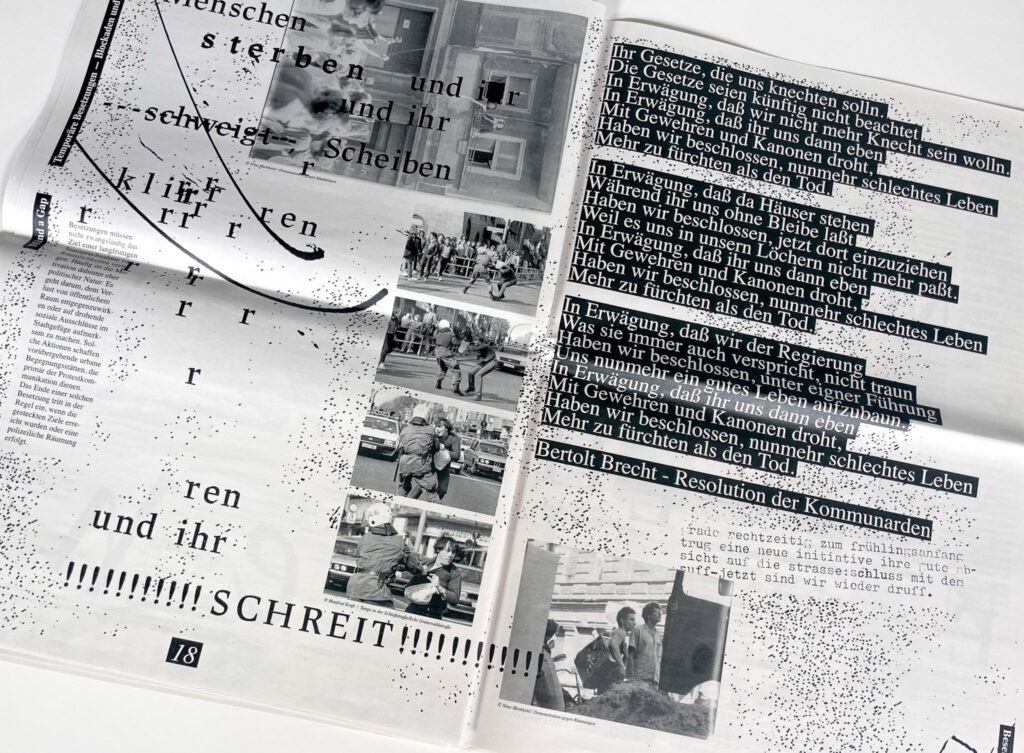 Menschen
sterben und ir
und ihr
schweigt Scheiben
r
klirrr
rr
r rr r ren
r
r
r
r
r r
r
ren
und ihr
!!!!!!!!!!!SCHREIT!!!!!!!!!!!
18
Temporäre Besetzungen – Blockaden und
nd a Gap
Besetzungen müssen
nicht zwangsläufig das
Ziel einer langfristigen
gen. Häufig ist die Mo-
tivation dahinter eher
politischer Natur: Es
geht darum, dem Ver-
lust von öffentlichem
Raum entgegenzuwirk-
en oder auf drohende
soziale Ausschlüsse im
Stadtgefüge aufmerk-
sam zu machen. Sol-
che Aktionen schaffen
vorübergehende urbane
Begegnungsstätten, die
primär der Protestkom-
munikation dienen.
Das Ende einer solchen
Besetzung tritt in der
Regel ein, wenn die
gesteckten Ziele erre-
icht wurden oder eine
polizeiliche Räumung
erfolgt.
© Manfred Kraft / Tango in der Schloßstraße/Ecke Grunewaldstraße
Ihr Gesetze, die uns knechten solln.
Die Gesetze seien künftig nicht beachtet
In Erwägung, daß wir nicht mehr Knecht sein wolln.
In Erwägung, daß ihr uns dann eben
Mit Gewehren und Kanonen droht,
Haben wir beschlossen, nunmehr schlechtes Leben
Mehr zu fürchten als den Tod.
In Erwägung, daß da Häuser stehen
Während ihr uns ohne Bleibe laßt
Haben wir beschlossen, jetzt dort einzuziehen
Weil es uns in unsern Löchern nicht mehr paßt.
In Erwägung, daß ihr uns dann eben
Mit Gewehren und Kanonen droht,
Haben wir beschlossen, nunmehr schlechtes Leben
Mehr zu fürchten als den Tod.
In Erwägung, daß wir der Regierung
Was sie immer auch verspricht, nicht traun
Haben wir beschlossen, unter eigner Führung
Uns nunmehr ein gutes Leben aufzubaun,
In Erwägung, daß ihr uns dann eben
Mit Gewehren und Kanonen droht,
Haben wir beschlossen, nunmehr schlechtes Leben
Mehr zu fürchten als den Tod.
Bertolt Brecht - Resolution der Kommunarden
rade rechtzeitig zum frühlingsanfang
trug eine neue initiative ihre gute ab-
sicht auf die strasse:schluss mit dem
suff-jetzt sind wir wieder druff.
© Nina Meinhold / Demonstration gegen Räumungen
Bese